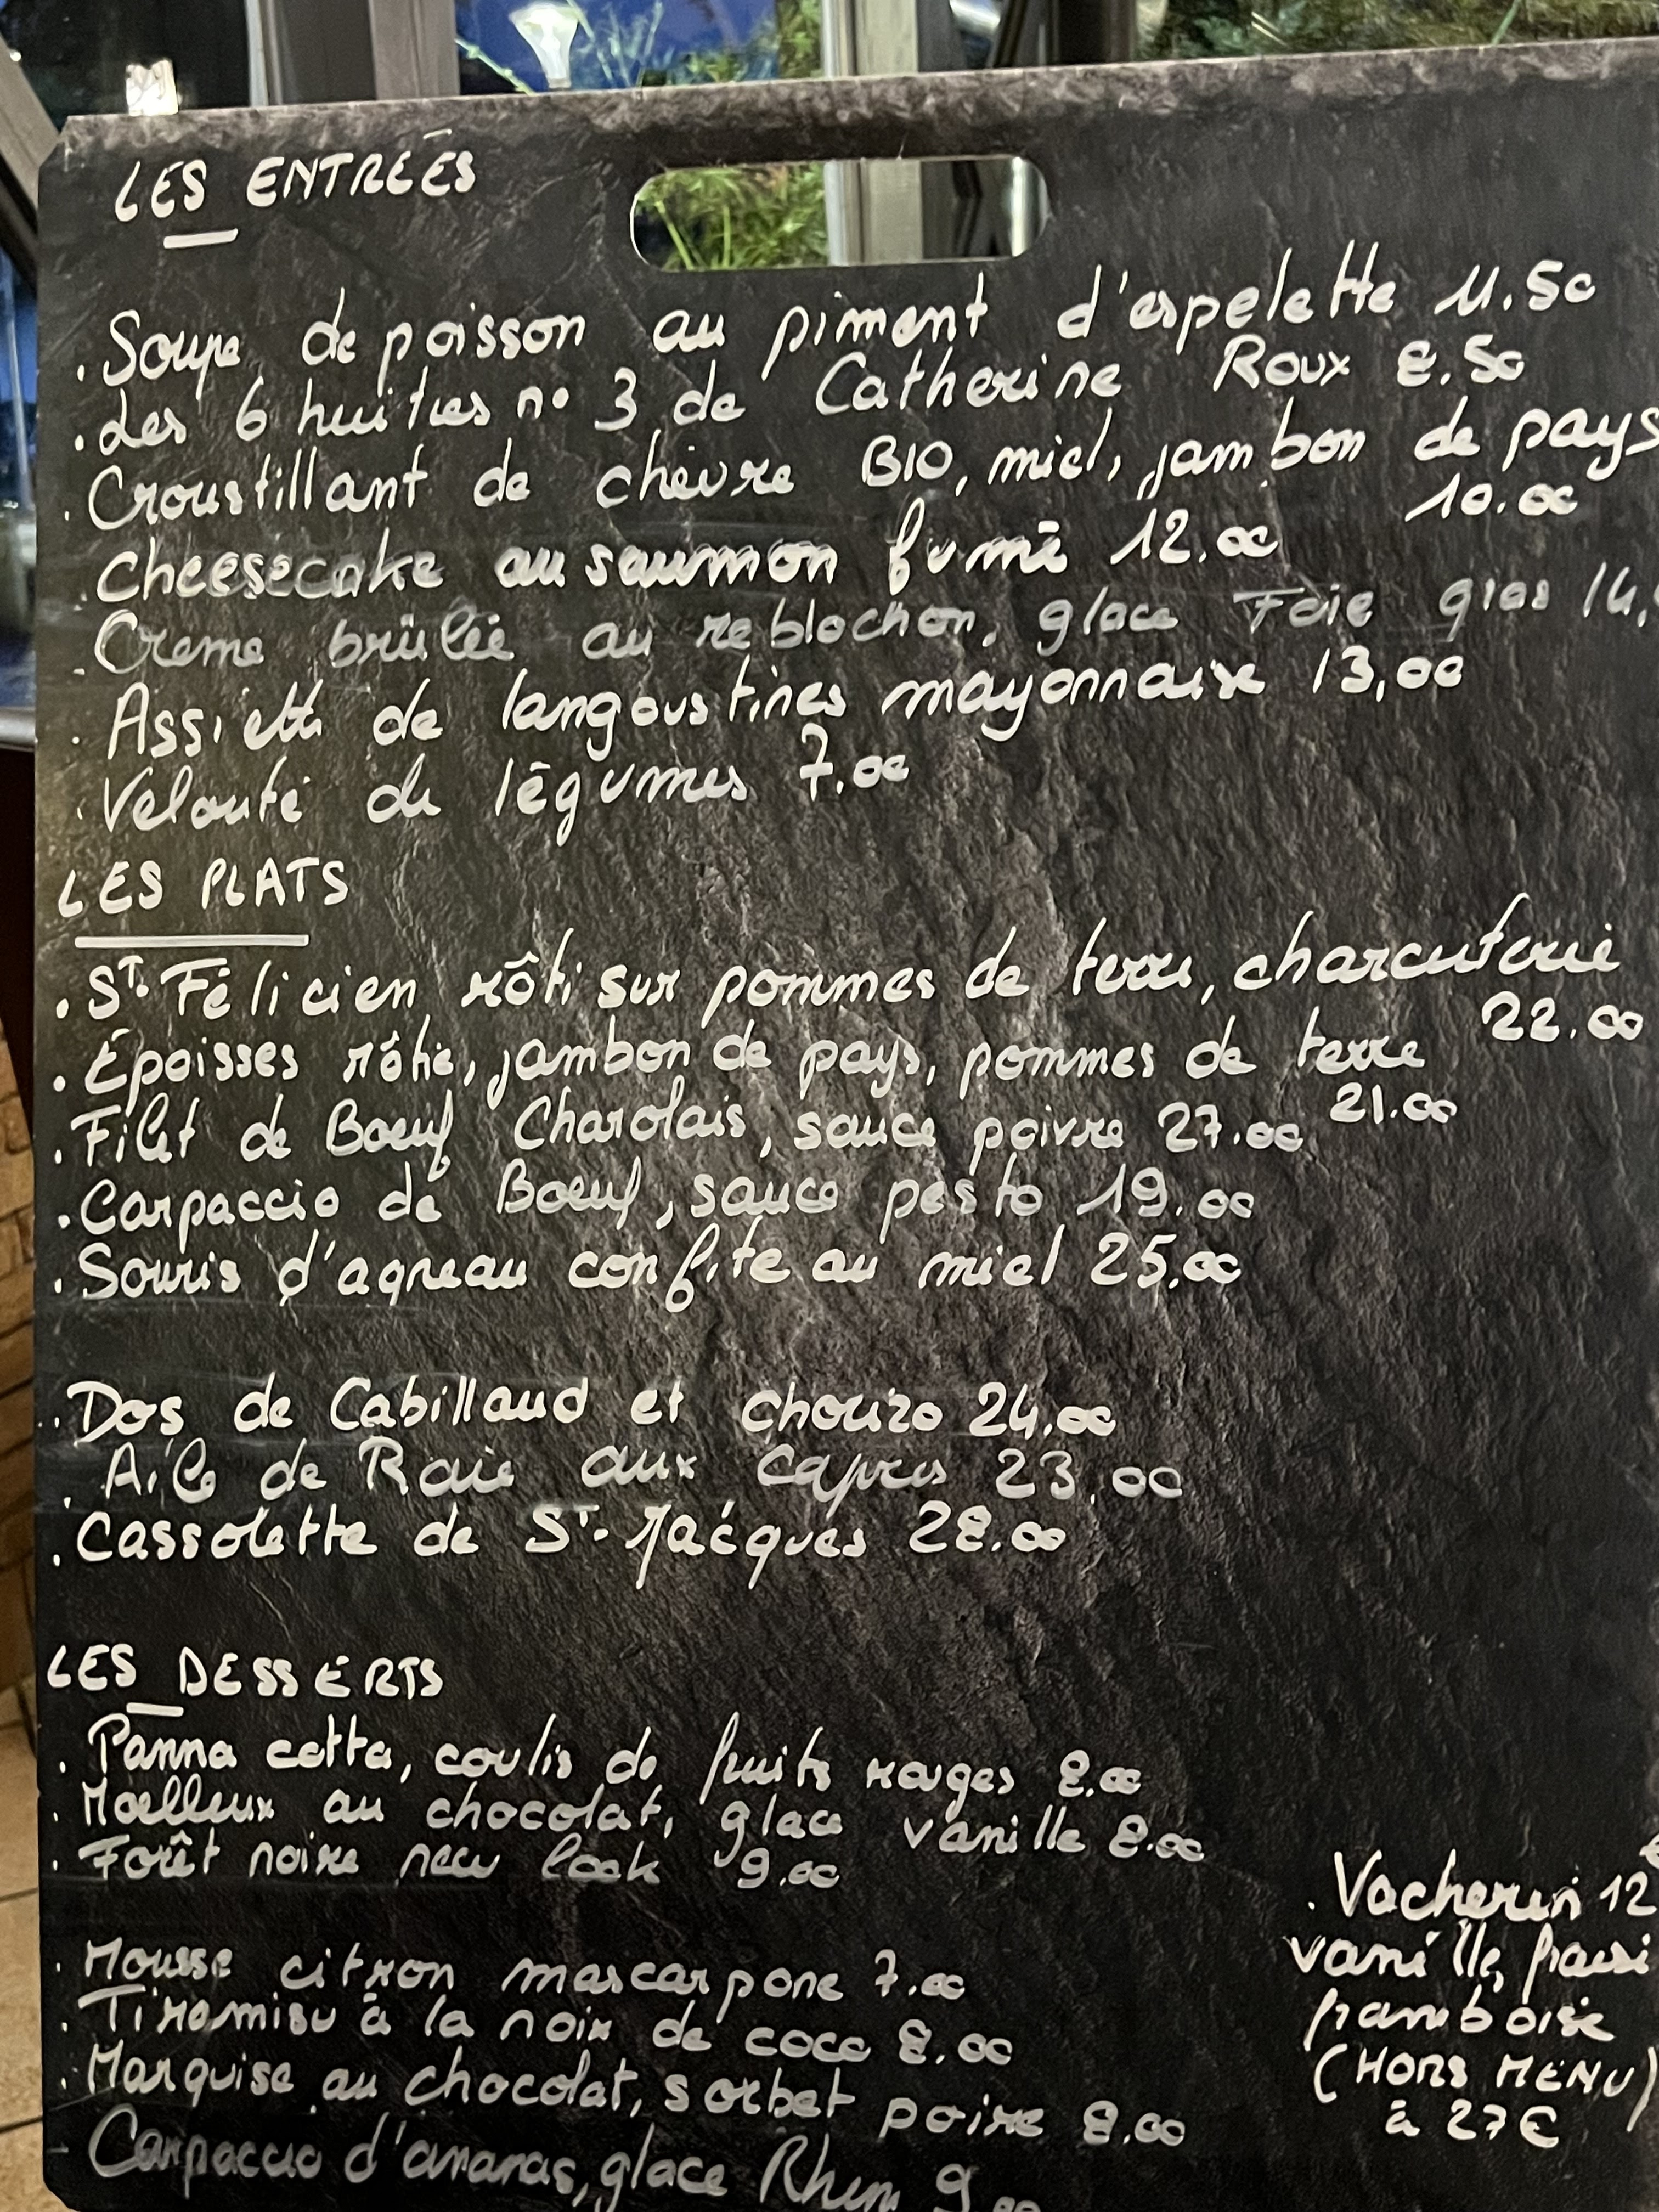 LES ENTRÉES
. Soupe de poisson au piment d'espelette 11.50
. Les 6 huitres n° 3 de Catherine Roux 8.50
. Croustillant de chèvre BIO, miel, jambon de pays
10.00
. Cheesecake au saumon fumé 12.00
. Creme brûlée au reblochon, glace Foie gras 14,
. Assiette de langoustines mayonnaise 13,00
. Velouté de légumes 7.00
LES PLATS
. ST. Félicien rôti sur pommes de terre, charcuterie
22.00
. Epoisses rôtie, jambon de pays, pommes de terre
21.00
. Filet de Boeuf Charolais, sauce poivre 27.00
. Carpaccio de Boeuf, sauce pesto 19.00
. Souris d'agneau confite au miel 25.00
. Dos de Cabillaud et chorizo 24,00
. Aile de Raie aux capres 23,00
. Cassolette de ST-Jacques 28.00
LES DESSERTS
. Panna cotta, coulis de fruits rouges 8.00
. Moelleux au chocolat, glace vanille 8.00
. Forêt noire new look 9.00
. Mousse citron mascarpone 7.00
. Tiramisu à la noix de coco 8.00
. Marquise au chocolat, sorbet poire 8.00
- Carpaccio d'ananas, glace Rhum 9.00
. Vacherin 12
vanille, frai
framboise
(HORS MENU)
à 27€